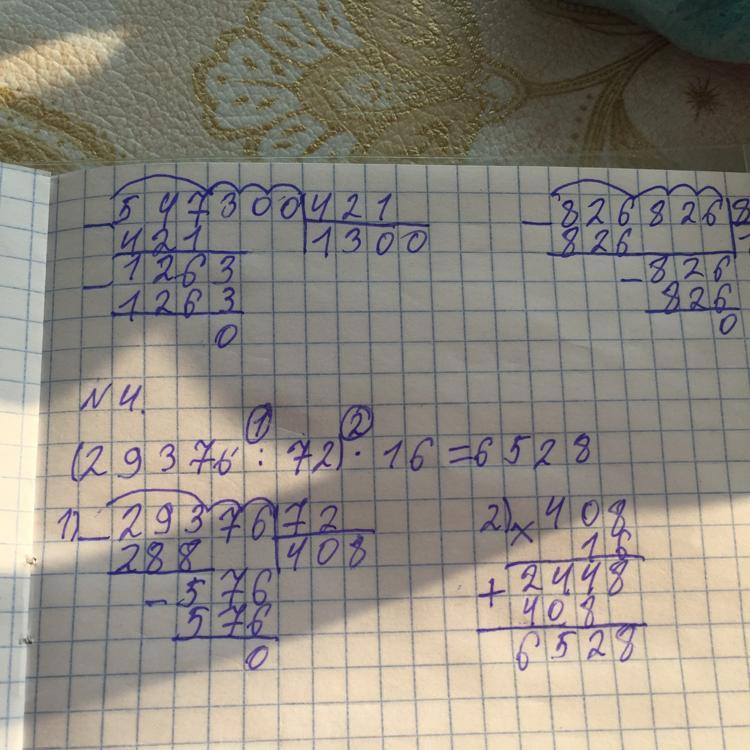 - 547300 | 421
421 | 1300
- 1263
1263
0
- 826826 | 8
826
- 826
826
0
N 4.
① ②
(29376 : 72) · 16 = 6528
1) - 29376 | 72
288 | 408
- 576
576
0
2) × 408
16
+ 2448
408
6528